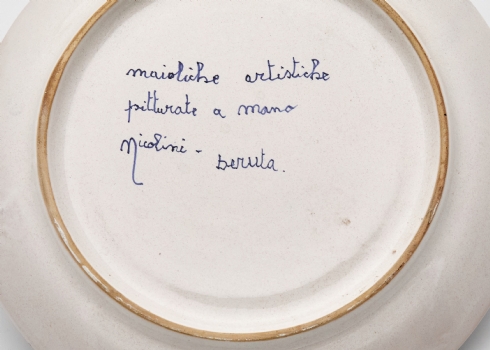 maioliche artistiche
pitturate a mano
Nicolini - Deruta.